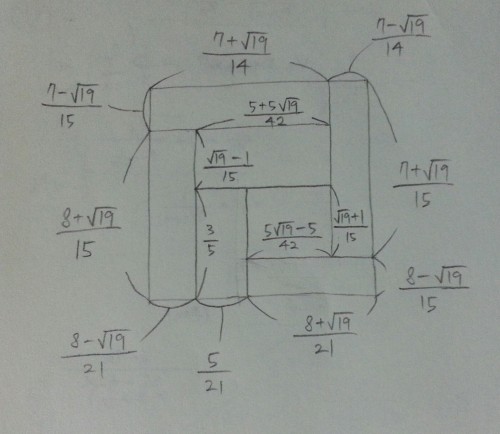 7+√19/14
7-√19/14
7-√19/15
5+5√19/42
√19-1/15
7+√19/15
8+√19/15
3/5
5√19-5/42
√19+1/15
8-√19/15
8-√19/21
5/21
8+√19/21